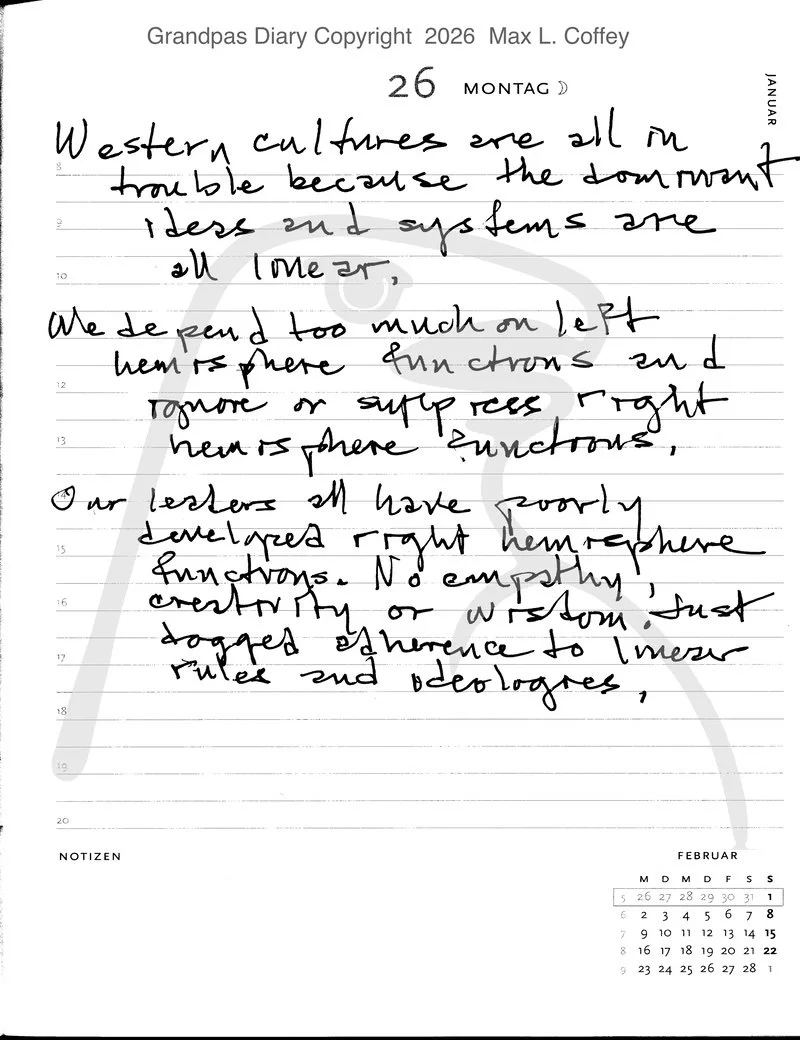 Grandpas Diary Copyright 2026 Max L. Coffey
26 MONTAG
JANUAR
Western cultures are all in
8
trouble because the dominant
9
ideas and systems are
10
all linear.
We depend too much on left
hemisphere functions and
12
ignore or suppress right
13
hemisphere functions.
14
Our leaders all have poorly
developed right hemisphere
15
functions. No empathy,
16
creativity or wisdom. Just
dogged adherence to linear
17
rules and ideologies.
18
19
20
NOTIZEN
FEBRUAR
M D M D F S S
5 26 27 28 29 30 31 1
6 2 3 4 5 6 7 8
7 9 10 11 12 13 14 15
8 16 17 18 19 20 21 22
9 23 24 25 26 27 28 1